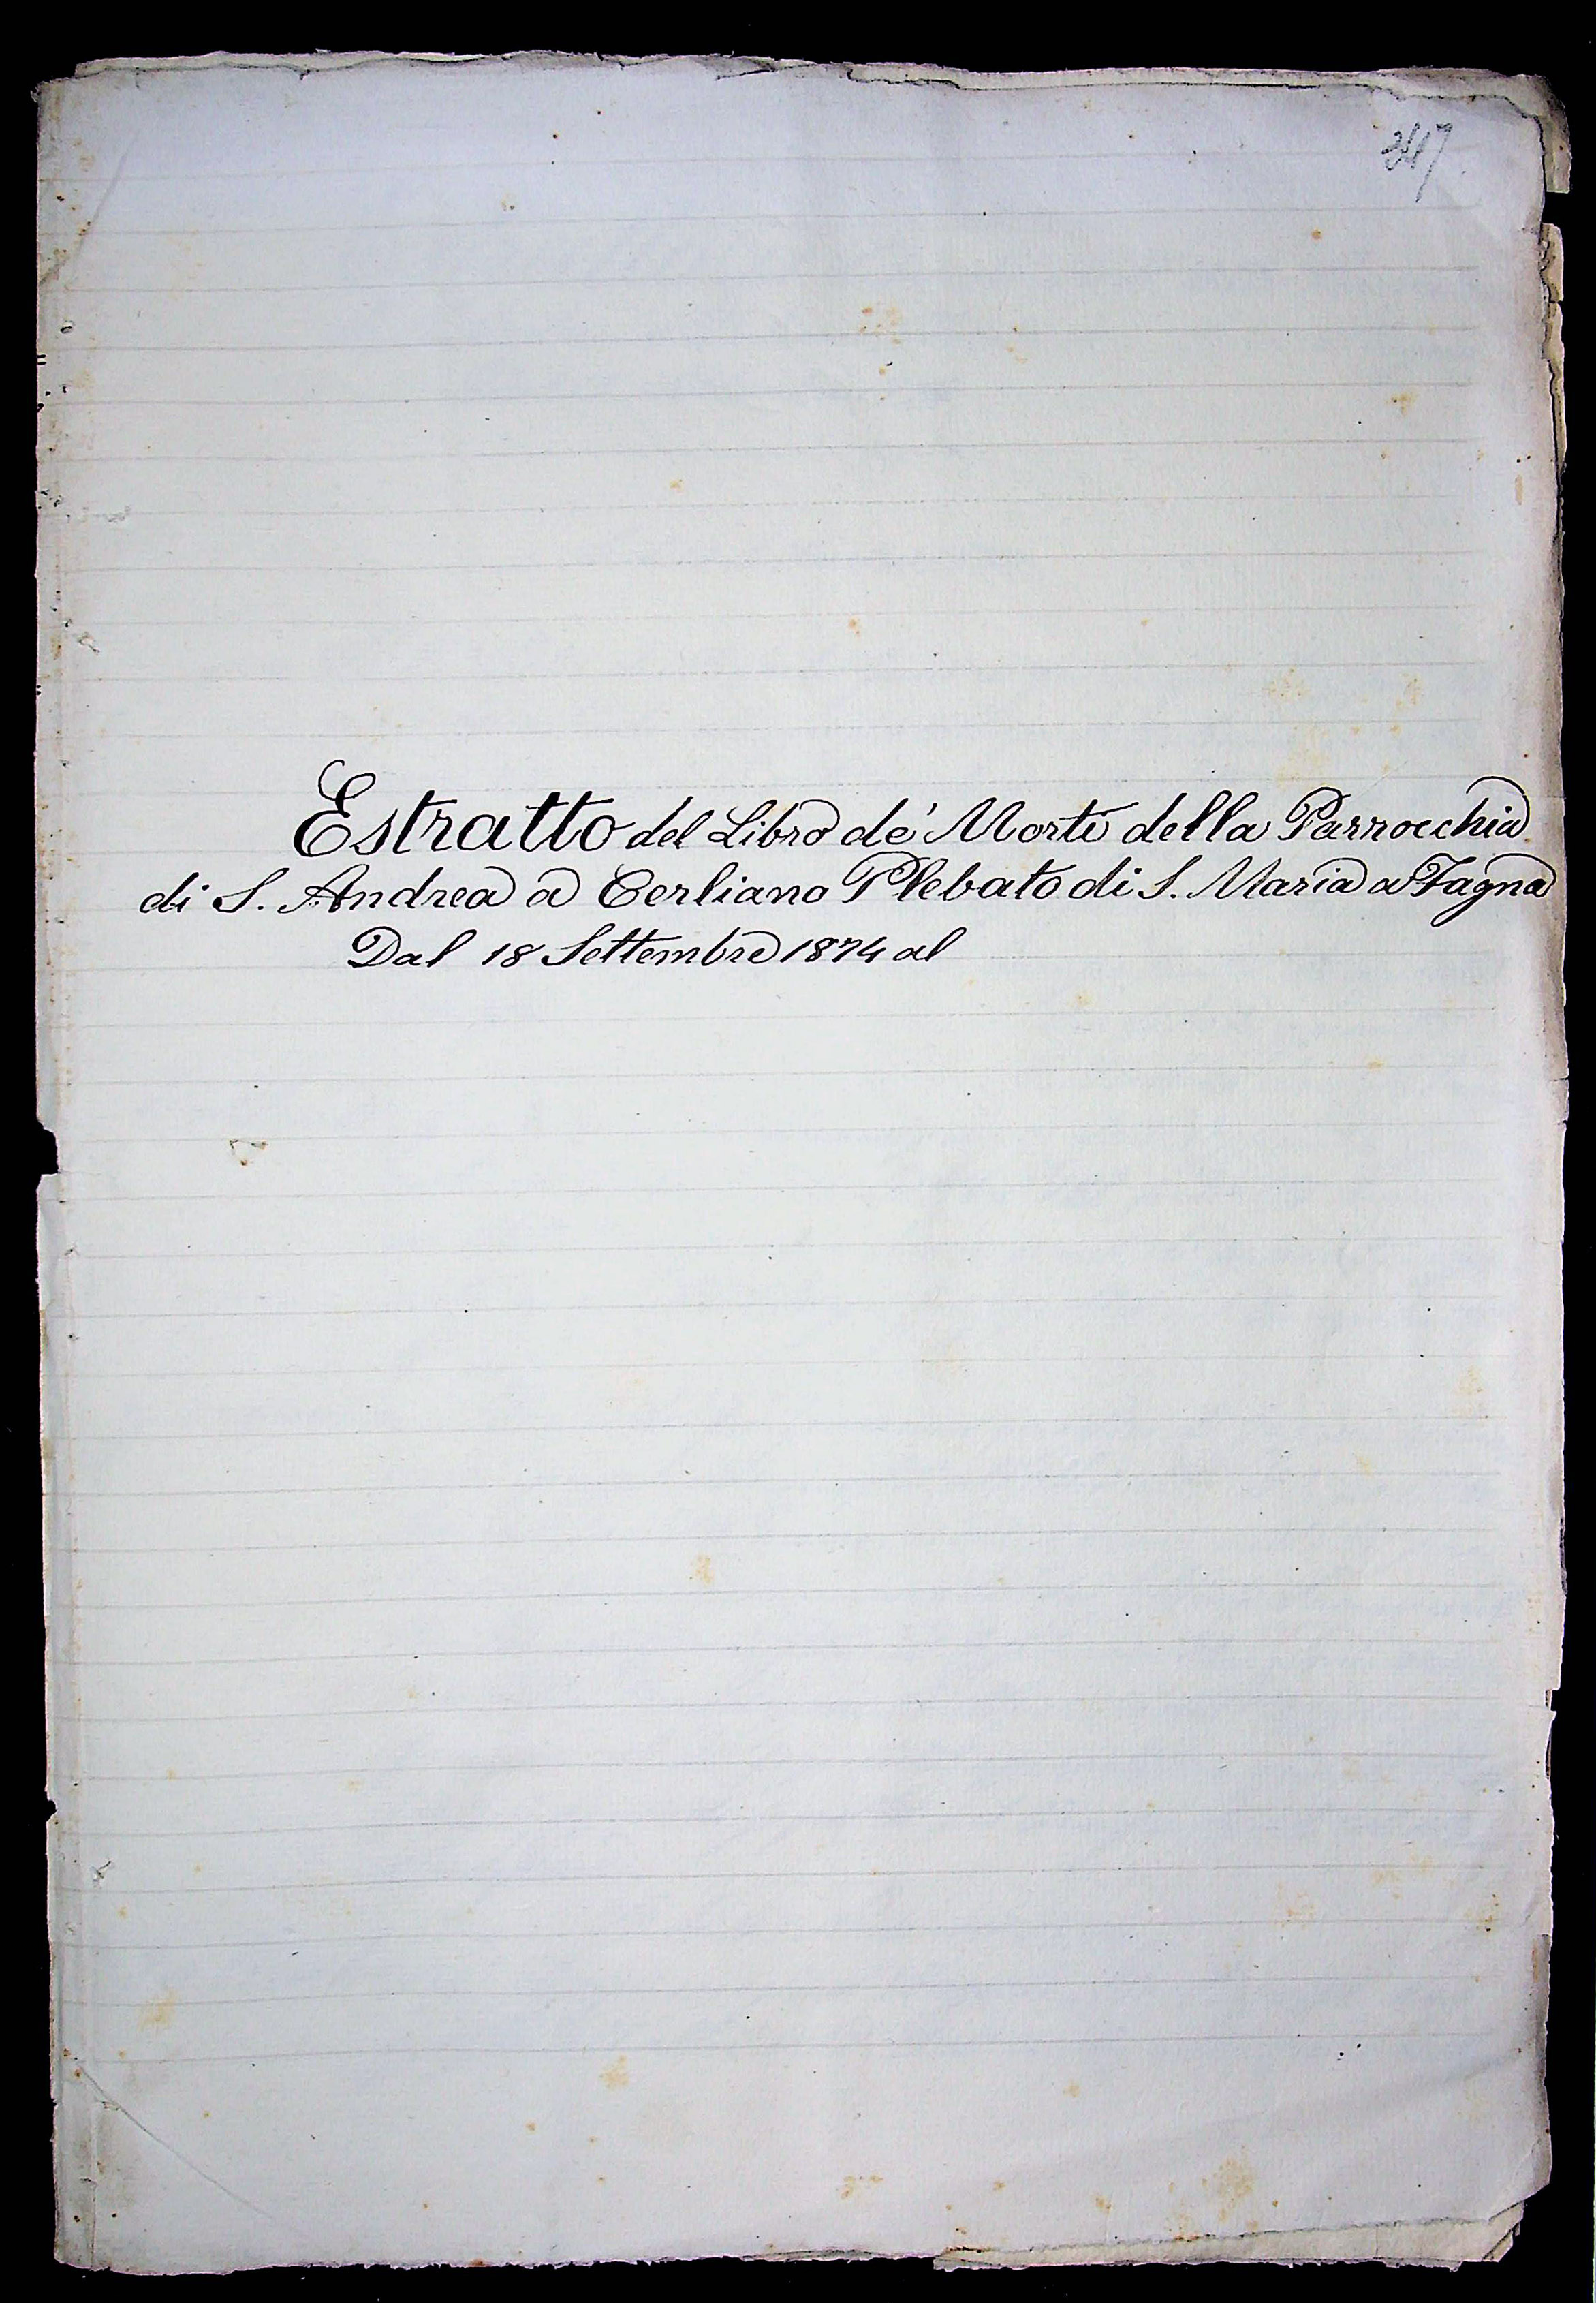 Estratto del Libro de' Morti della Parrocchia
di S. Andrea a Cerliano Plebato di S. Maria a Fagna
Dal 18 Settembre 1874 al